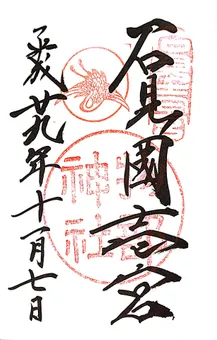 石見國壱宮
物部
神社
平成廿九年十一月七日